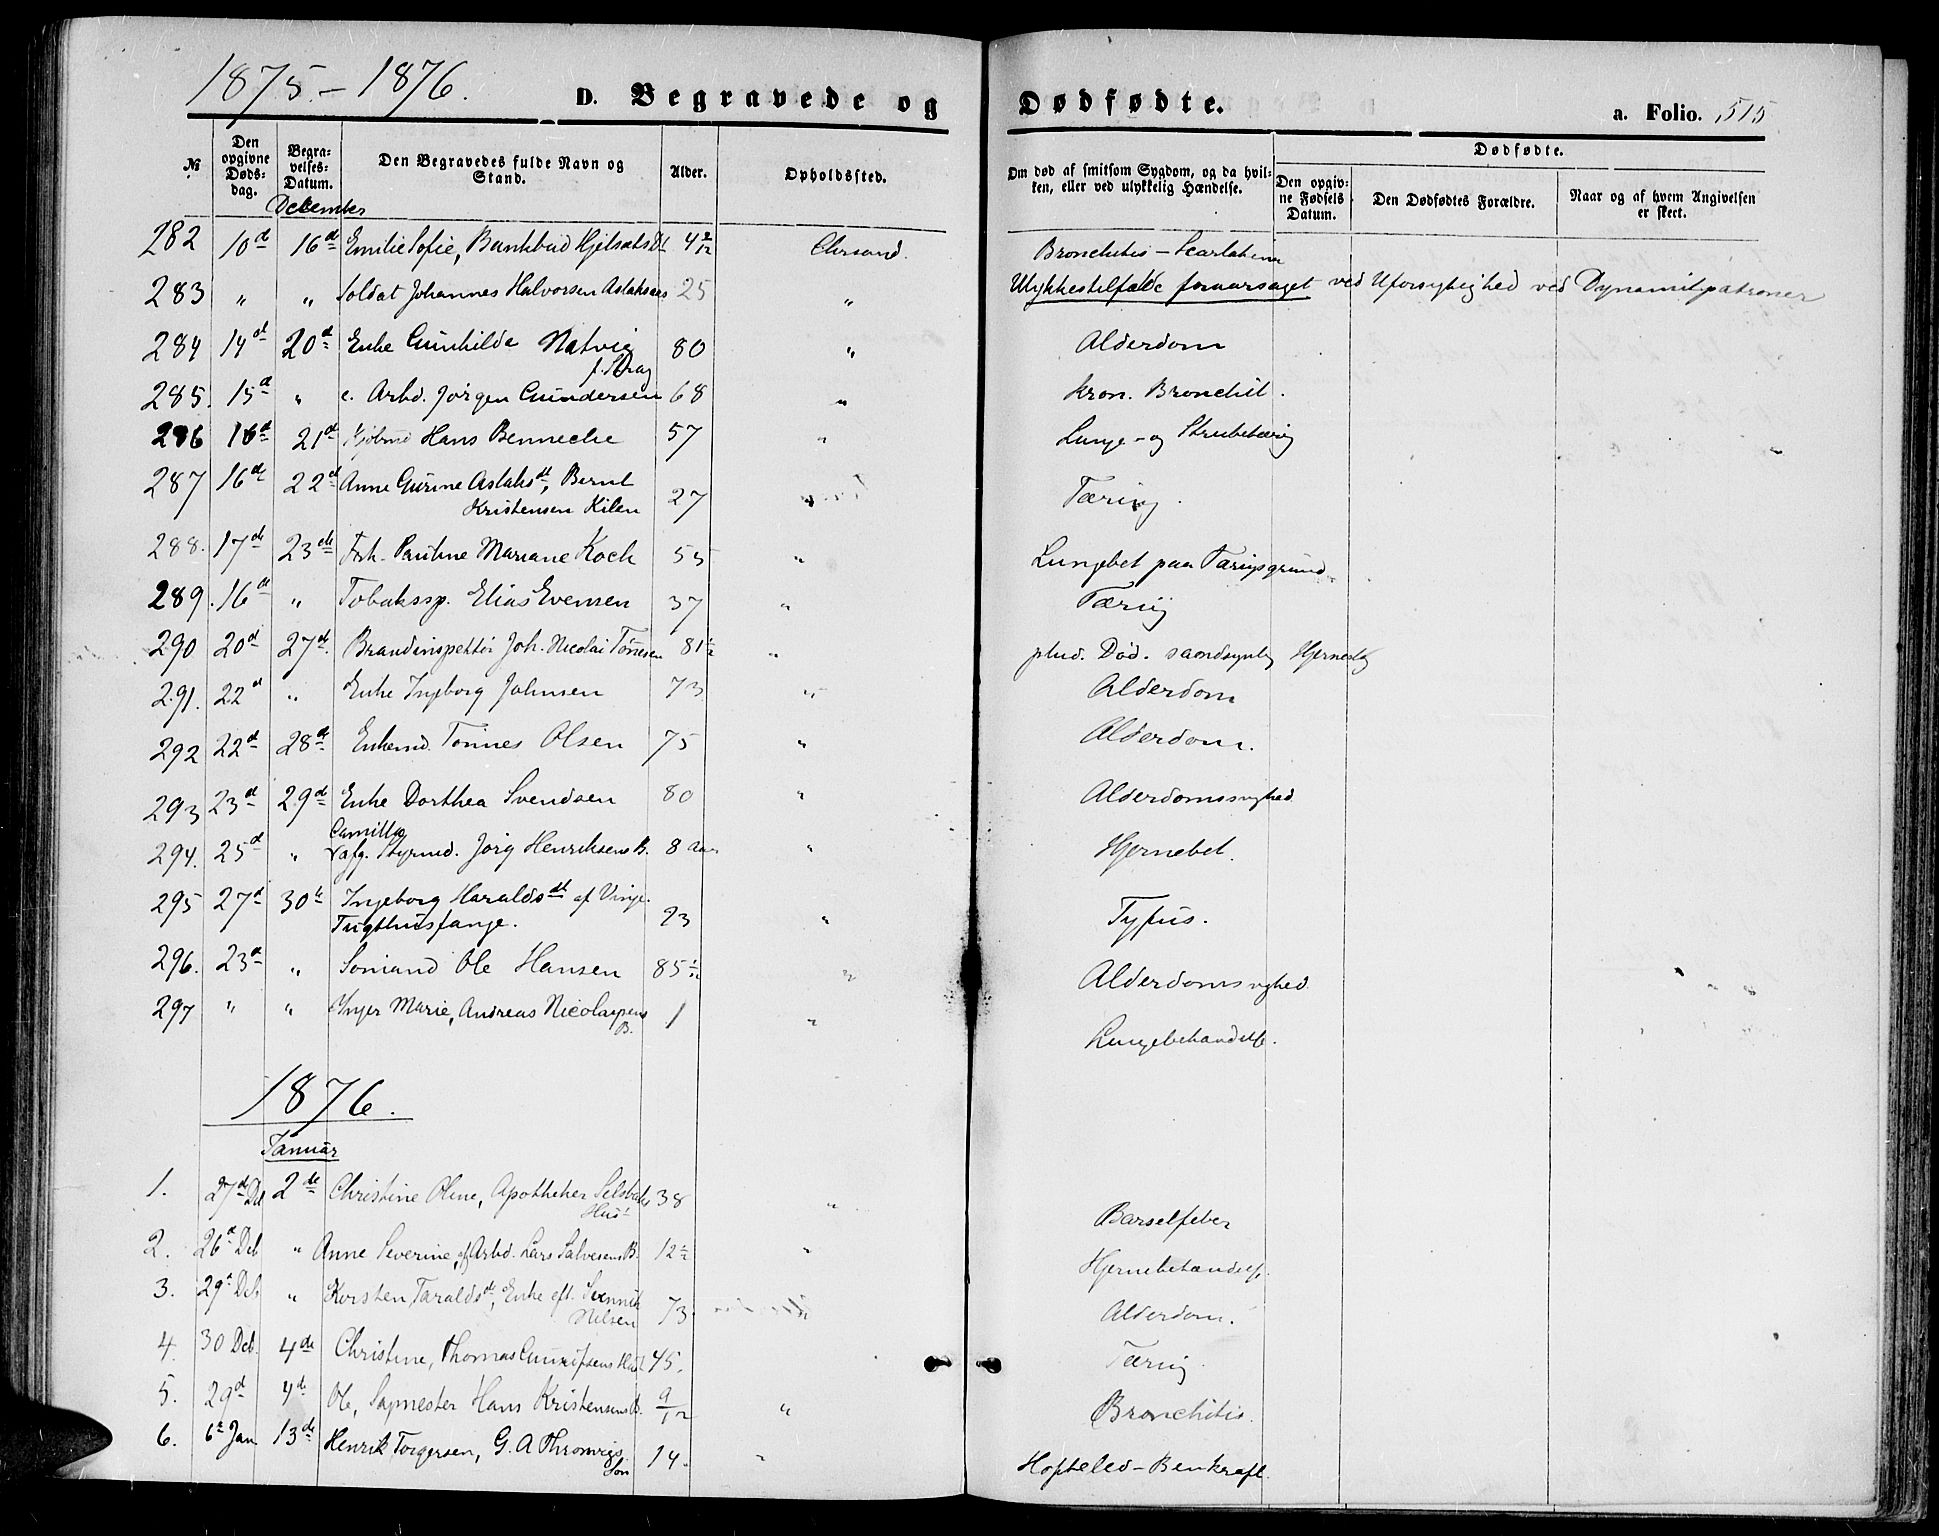 1875 – 1876.
D. Begravede og Dødfødte.
a. Folio. 515
№
Den opgivne Døds-dag.
Begra-velses-Datum.
Den Begravedes fulde Navn og Stand.
Alder.
Opholdssted.
Om død af smitsom Sygdom, og da hvil-ken, eller ved ulykkelig Hændelse.
Dødfødte.
Den opgiv-ne Fødsels Datum.
Den Dødfødtes Forældre.
Naar og af hvem Angivelsen er skeet.
December
282 10d 16d Emilie Sofie, 4 2/12 Chrsand. Bronchitis – Scarlatina
283 " " Soldat Johannes Halvorsen 25 " Ulykkestilfælde foraarsaget ved Uforsigtighed ved Dynamitpatroner
284 14d 20d Enke Gunhilde Natvig 80 " Alderdom
f. Dag
285. 15d " e. Arbd. Jörgen Gundersen 68 " kron. Bronchit.
286 16d 21d Kjöbmd Hans Bennecke 57 " Lunge- og Strubetæring
287 16de 22d Anne Gurine Aslaksdt, Bernt
Kristensen Kilen 27 " Tæring.
288. 17de 23de Frk. Pauline Mariane Koch 55 " Lungebet paa Tæringsgrund
289. 16de " Tobakssp. Elias Evensen 37 " Tæring
290 20d 27de Brandinspektör Joh. Nicolai Tönnesen 81½ " plud. Död. sandsynlig
291. 22d " Enke Ingeborg Johnsen 73 " Alderdom
292 22d 28de Enkemd. Tönnes Olsen 75 " Alderdom.
293 23d 29d Enke Dorthea Svendsen 80 " Alderdomssvghed
Camilla
294. 25d " afg. Styrmd. Jörg Henriksens B. 8 Aar " Hjernebet.
295 27d 30te Ingeborg Haraldsdt af Vinje.
Tugthusfange. 23 " Tyfus.
296. 23d " Sömand Ole Hansen 85½ " Alderdomssvghed
297 " " Inger Marie, Andreas Nicolaysens
B. 1 " Lungebetændelse.
1876.
Januar
1. 27de Deb 2de Christine Oline, Apotheker 38 " Barselfeber
Hust
2. 26d Deb " Anne Severine, af Arbd. Lars Salvesens B. 12½ " Hjernebetændelse.
3. 29d Deb " Kirsten Taraldsdt, Enke eft.
Nilsen 73 Alderdom.
4. 30 Deb. 4de Christine, Thomas 45. Tæring
5. 29d 4de Ole, Hans Kristensens B. 9/12 " Bronchitis.
6. 6te Jan 13de Henrik Torgersen, G. A
Sön 14. " Hofteled – Benkræft.